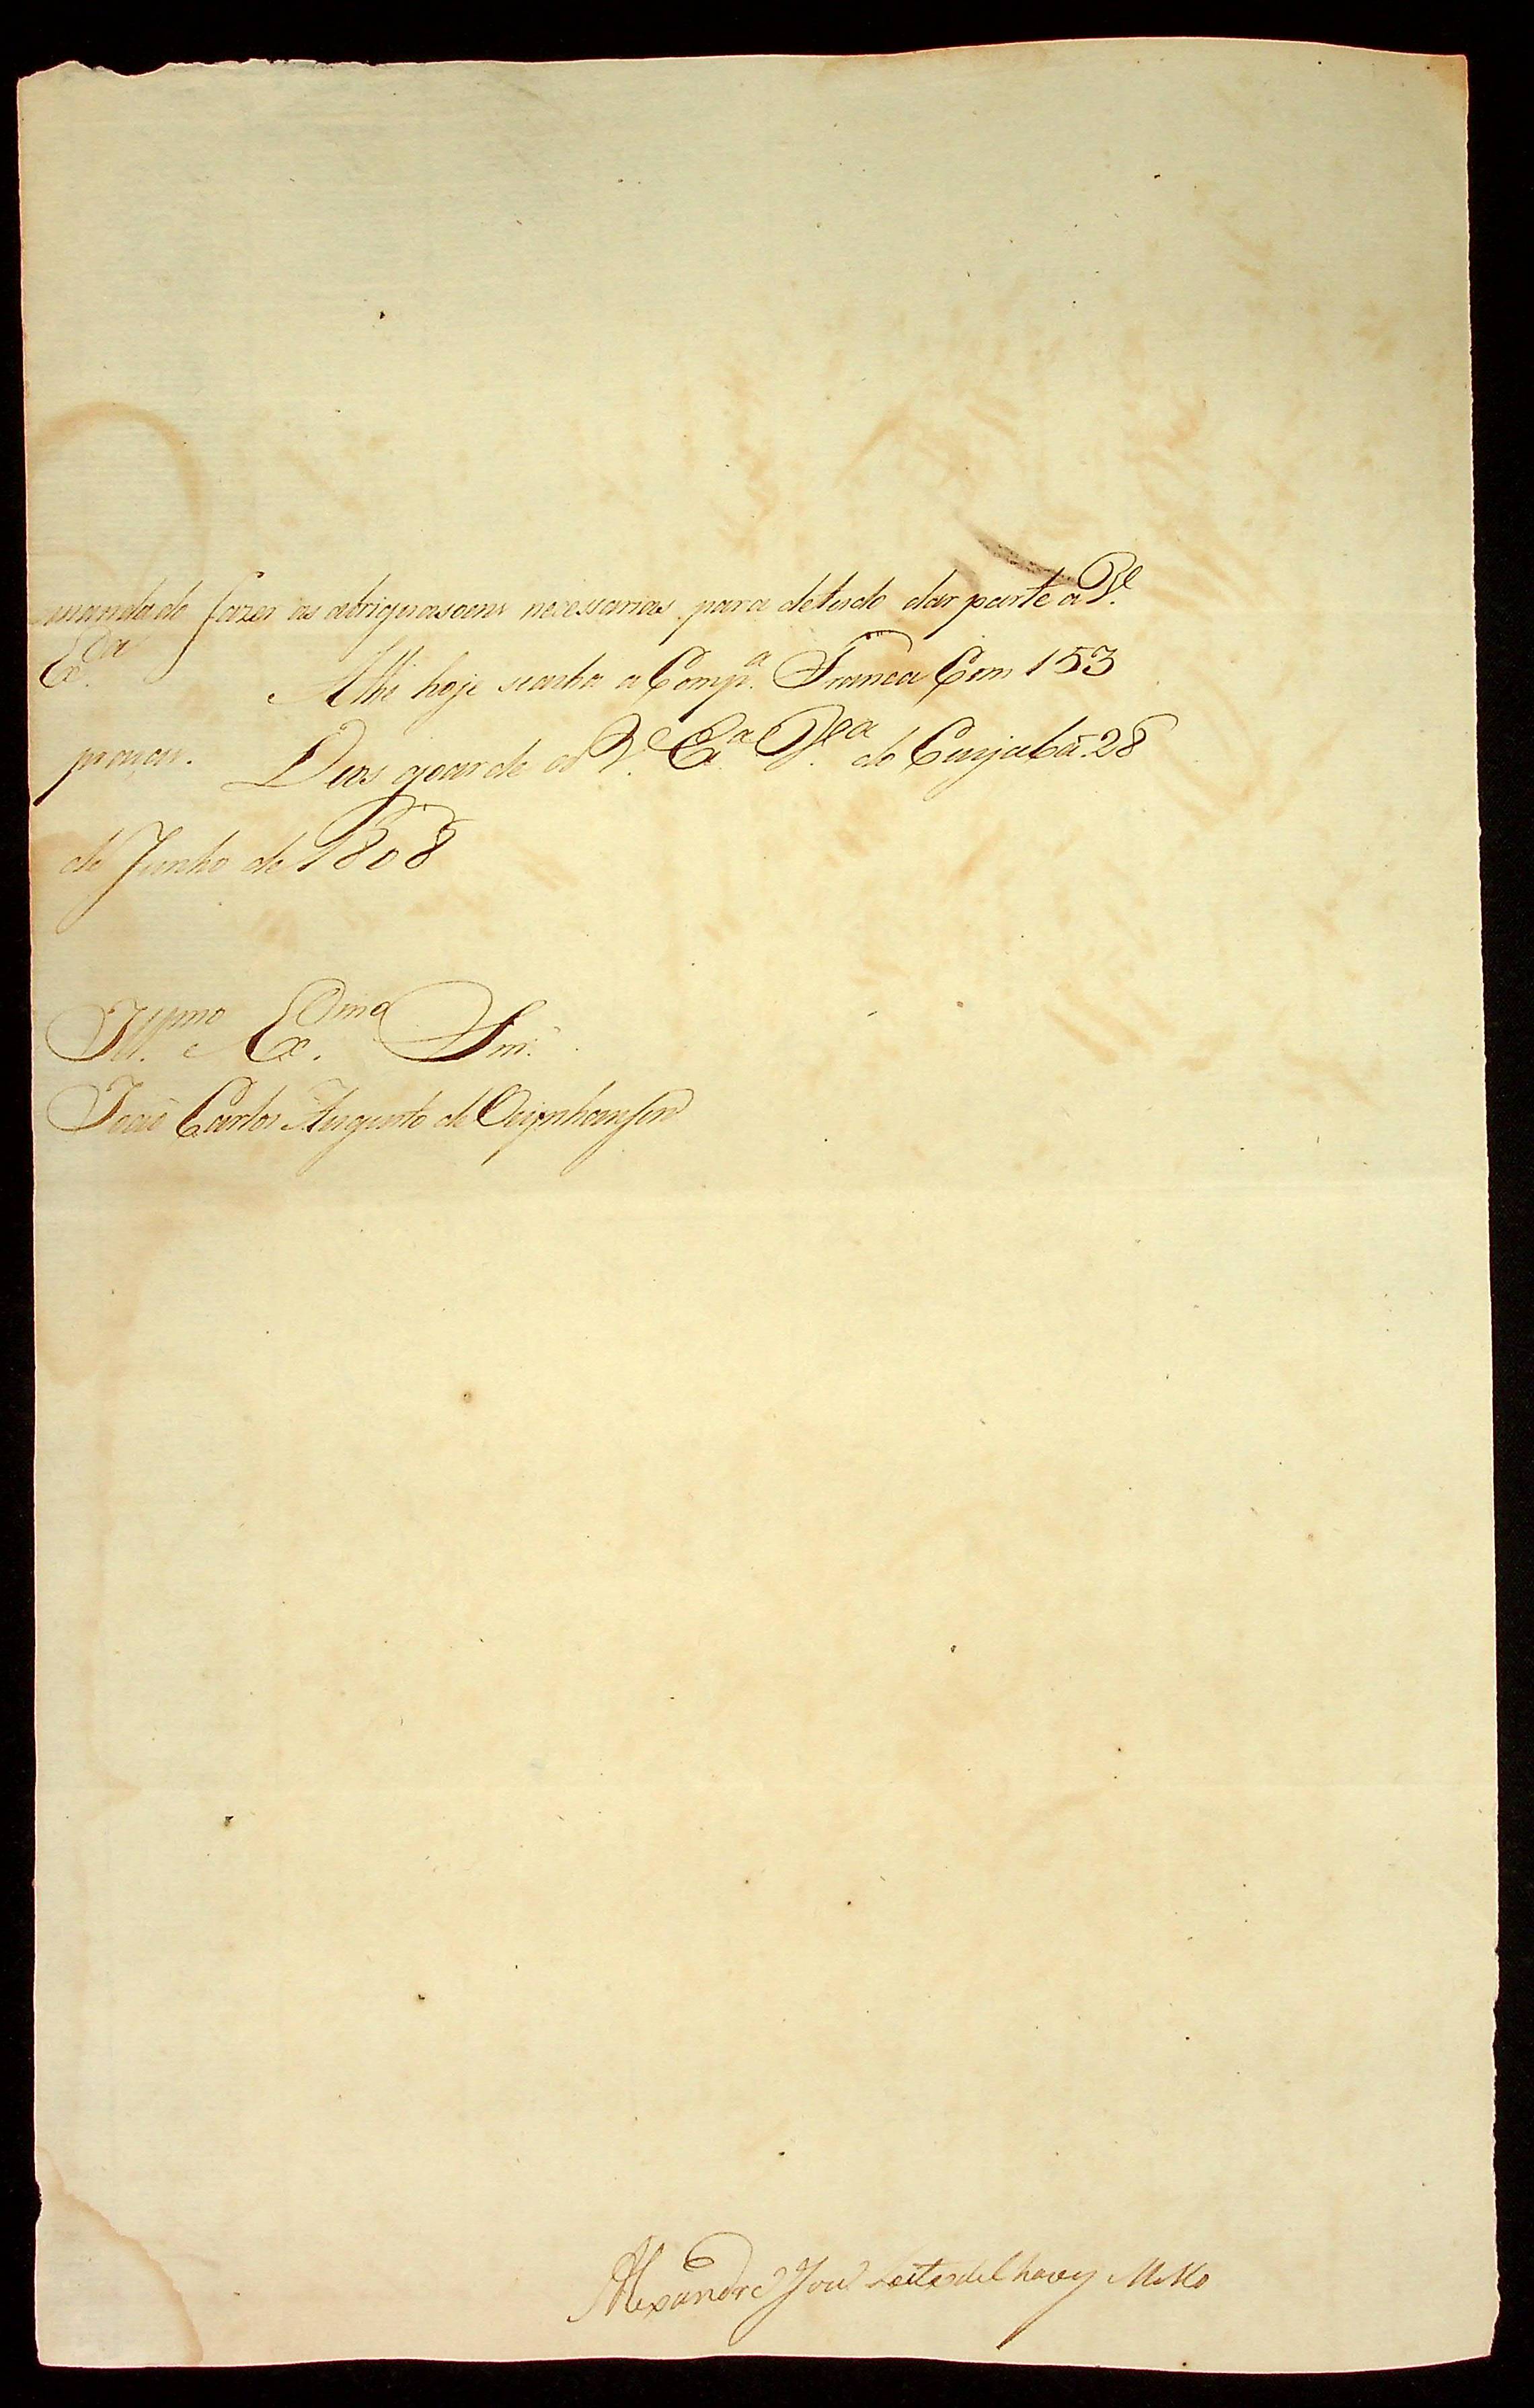 mandado fazer as abriguasoens necessarias para detudo dar parte a V.ª
Ex.ª
Athe hoje seacha a Comp.ª Franca Com 153
praças.
Deos goarde a V.ª Ex.ª V.ª de Cuyabá 28
de Junho de 1808
Ill.mo Ex.mo Snr.
João Carlos Augusto de Oeynhausen
Alexandre Joze Leite de Chaves Mello